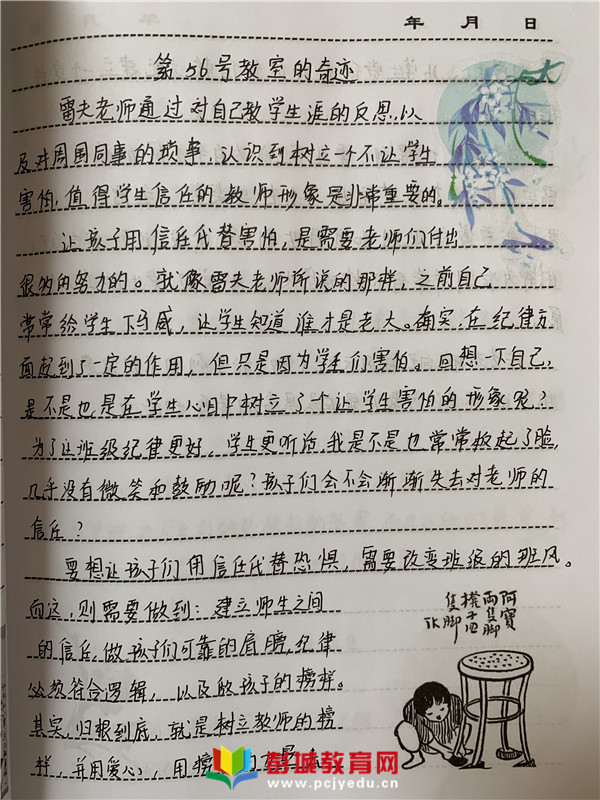 年 月 日
第56号教室的奇迹
雷夫老师通过对自己教学生涯的反思,以
及对周围同事的琐事,认识到树立一个不让学生
害怕,值得学生信任的教师形象是非常重要的。
让孩子用信任代替害怕,是需要老师们付出
很多的努力的。就像雷夫老师所说的那样,之前自己
常常给学生下马威,让学生知道谁才是老大。确实,在纪律方
面起到了一定的作用,但只是因为学生们害怕。回想一下自己,
是不是也是在学生心目中树立了个让学生害怕的形象呢?
为了让班级纪律更好,学生更听话,我是不是也常常板起了脸,
几乎没有微笑和鼓励呢?孩子们会不会渐渐失去对老师的
信任?
要想让孩子们用信任代替恐惧,需要改变班级的班风。
而这,则需要做到:建立师生之间
的信任,做孩子们可靠的肩膀,纪律
必须符合逻辑,以及做孩子的榜样。
其实,归根到底,就是树立教师的榜
样,并用爱心,用榜
阿寶
兩隻腳
櫈子四
隻腳
荔城教育网
www.pcjyedu.cn